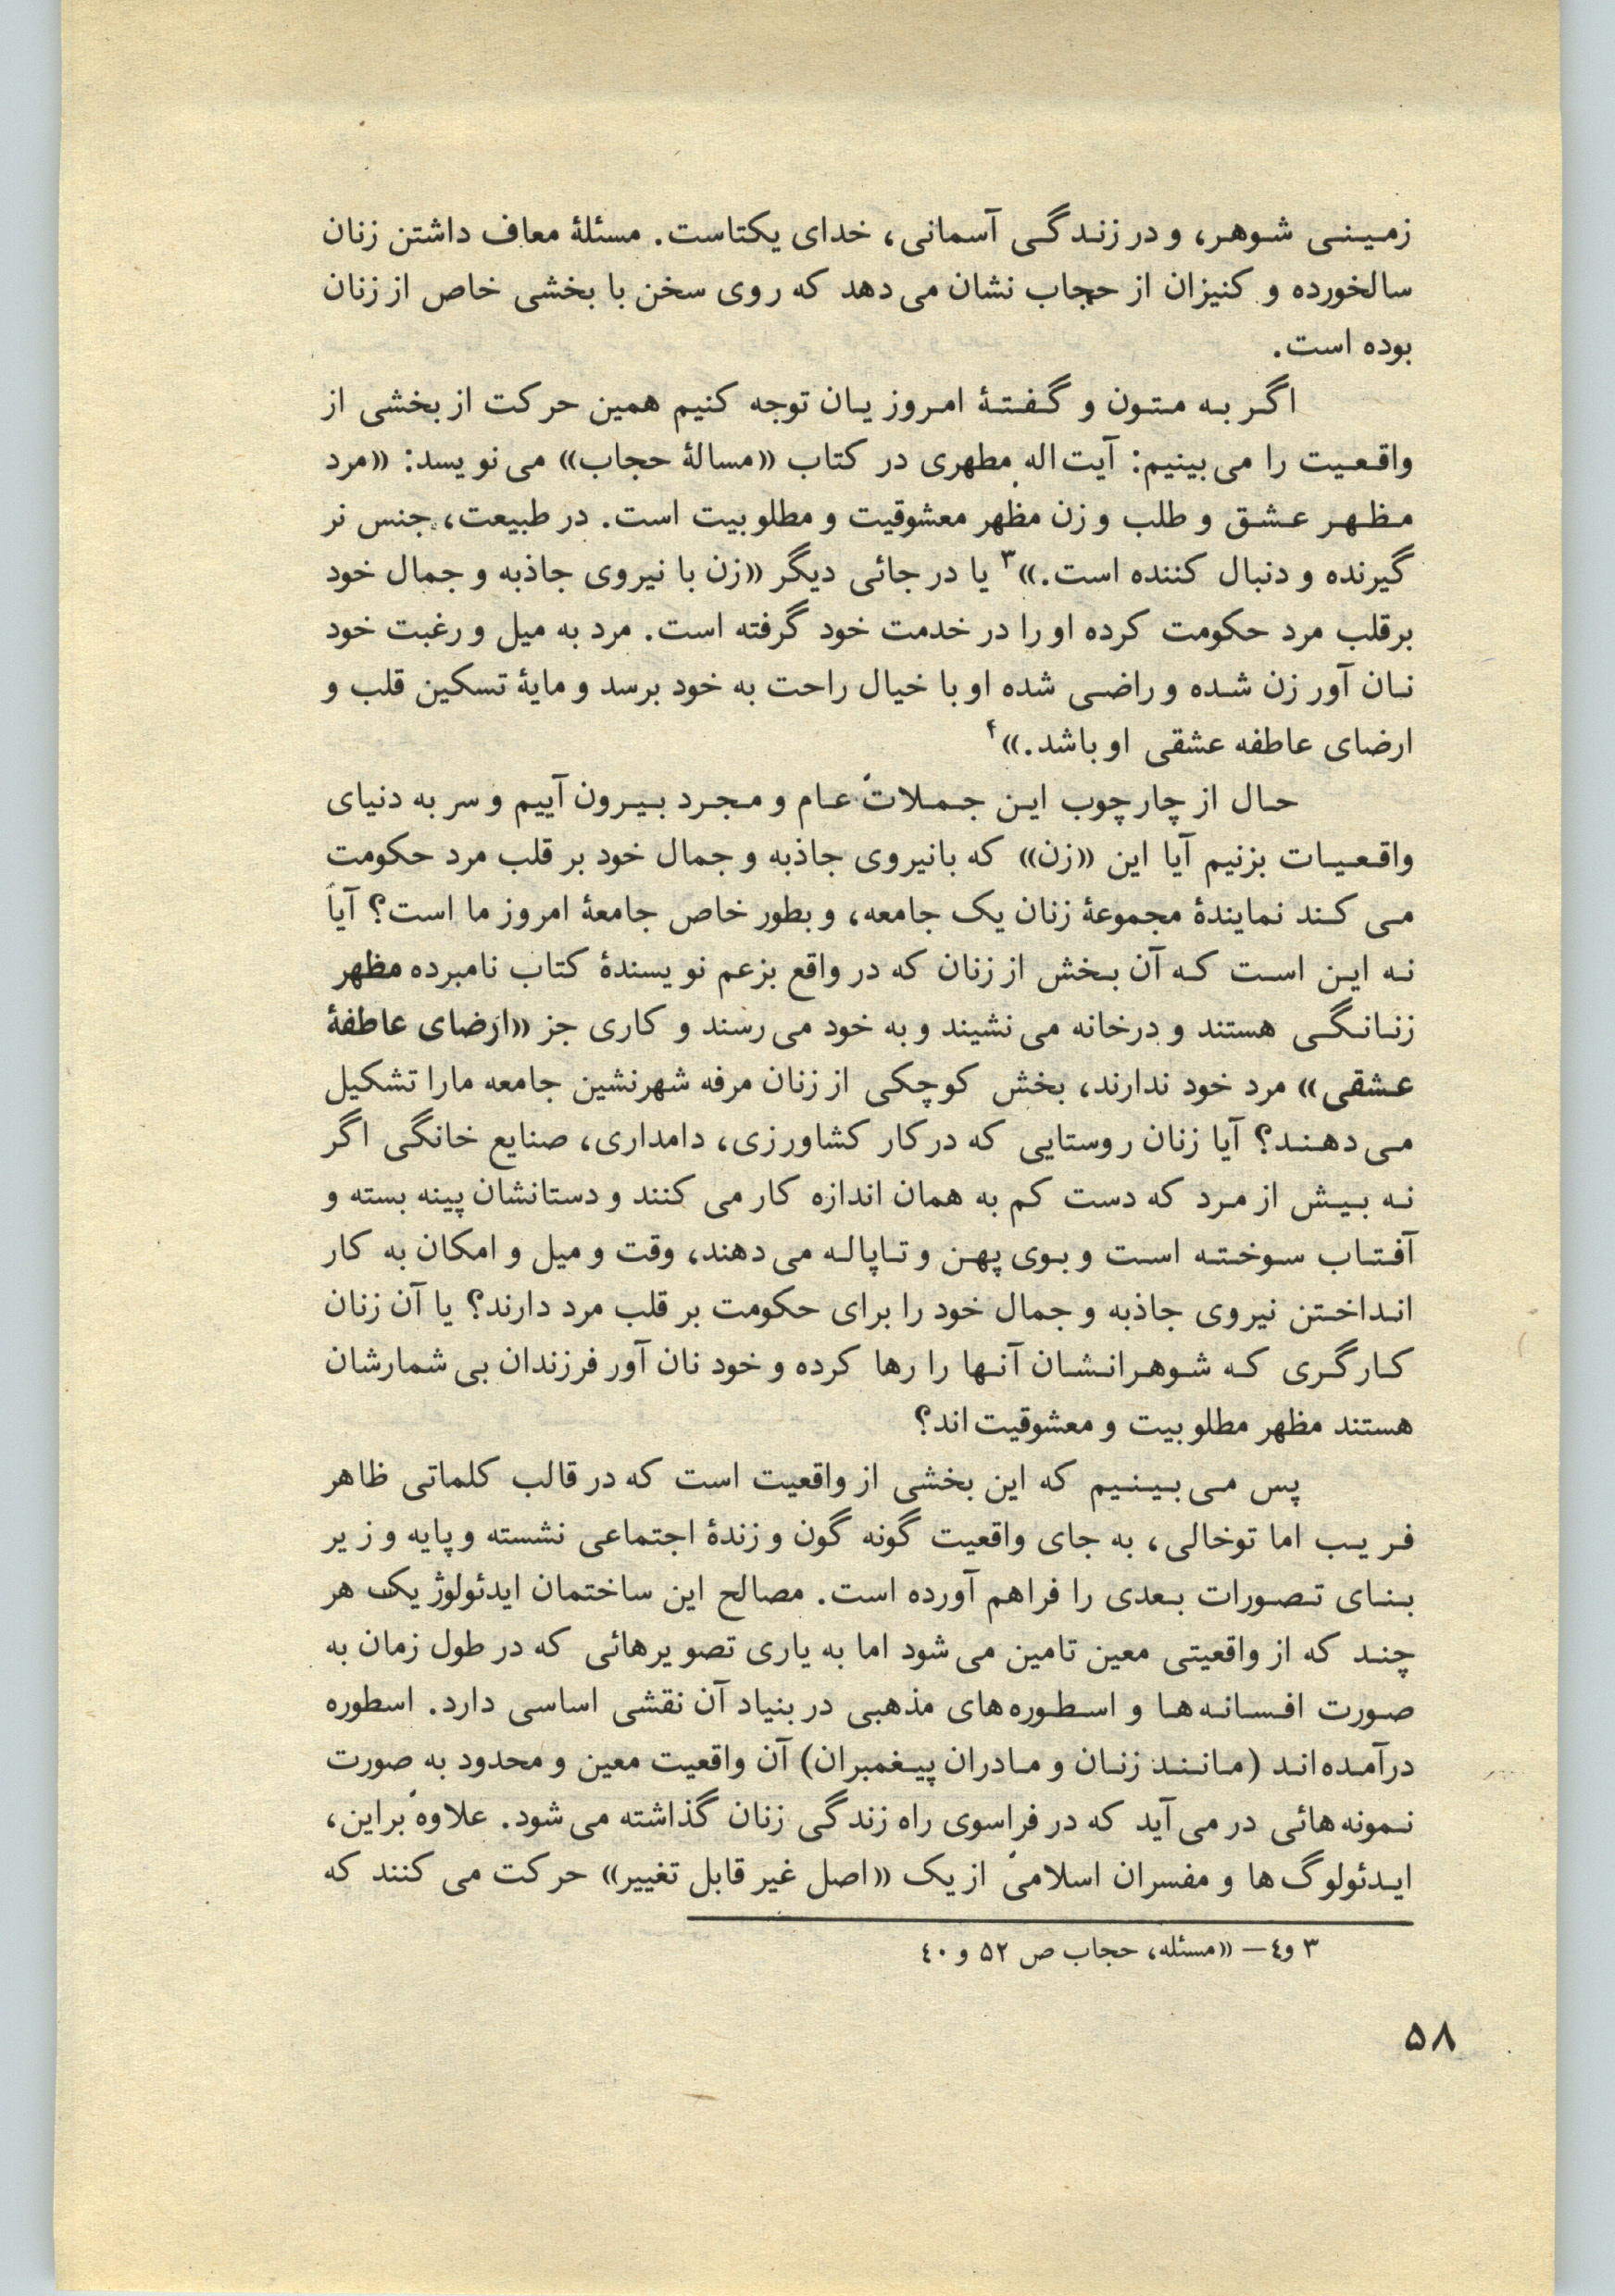 زمینی شوهر، و در زندگی آسمانی، خدای یکتاست. مسئلۀ معاف داشتن زنان
سالخورده و کنیزان از حجاب نشان می دهد که روی سخن با بخشی خاص از زنان
بوده است.
اگر به متون و گفتۀ امروزیان توجه کنیم همین حرکت از بخشی از
واقعیت را می بینیم: آیت اله مطهری در کتاب «مسالۀ حجاب» می نویسد: «مرد
مظهر عشق و طلب و زن مظهر معشوقیت و مطلوبیت است. در طبیعت، جنس نر
گیرنده و دنبال کننده است.»۳ یا در جائی دیگر «زن با نیروی جاذبه و جمال خود
برقلب مرد حکومت کرده او را در خدمت خود گرفته است. مرد به میل و رغبت خود
نان آور زن شده و راضی شده او با خیال راحت به خود برسد و مایۀ تسکین قلب و
ارضای عاطفه عشقی او باشد.»۴
حال از چارچوب این جملات عام و مجرد بیرون آییم و سر به دنیای
واقعیات بزنیم آیا این «زن» که بانیروی جاذبه و جمال خود بر قلب مرد حکومت
می کند نمایندۀ مجموعۀ زنان یک جامعه، و بطور خاص جامعۀ امروز ما است؟ آیا
نه این است که آن بخش از زنان که در واقع بزعم نویسندۀ کتاب نامبرده مظهر
زنانگی هستند و درخانه می نشیند و به خود می رسند و کاری جز «ارضای عاطفۀ
عشقی» مرد خود ندارند، بخش کوچکی از زنان مرفه شهرنشین جامعه مارا تشکیل
می دهند؟ آیا زنان روستایی که در کار کشاورزی، دامداری، صنایع خانگی اگر
نه بیش از مرد که دست کم به همان اندازه کار می کنند و دستانشان پینه بسته و
آفتاب سوخته است و بوی پهن و تاپاله می دهند، وقت و میل و امکان به کار
انداختن نیروی جاذبه و جمال خود را برای حکومت بر قلب مرد دارند؟ یا آن زنان
کارگری که شوهرانشان آنها را رها کرده و خود نان آور فرزندان بی شمارشان
هستند مظهر مطلوبیت و معشوقیت اند؟
پس می بینیم که این بخشی از واقعیت است که در قالب کلماتی ظاهر
فریب اما توخالی، به جای واقعیت گونه گون و زندۀ اجتماعی نشسته و پایه و زیر
بنای تصورات بعدی را فراهم آورده است. مصالح این ساختمان ایدئولوژیک هر
چند که از واقعیتی معین تامین می شود اما به یاری تصویرهائی که در طول زمان به
صورت افسانه ها و اسطوره های مذهبی در بنیاد آن نقشی اساسی دارد. اسطوره
درآمده اند (مانند زنان و مادران پیغمبران) آن واقعیت معین و محدود به صورت
نمونه هائی در می آید که در فراسوی راه زندگی زنان گذاشته می شود. علاوه براین،
ایدئولوگ ها و مفسران اسلامی از یک «اصل غیر قابل تغییر» حرکت می کنند که
۳ و٤— «مسئله، حجاب ص ۵۲ و ٤۰
۵۸